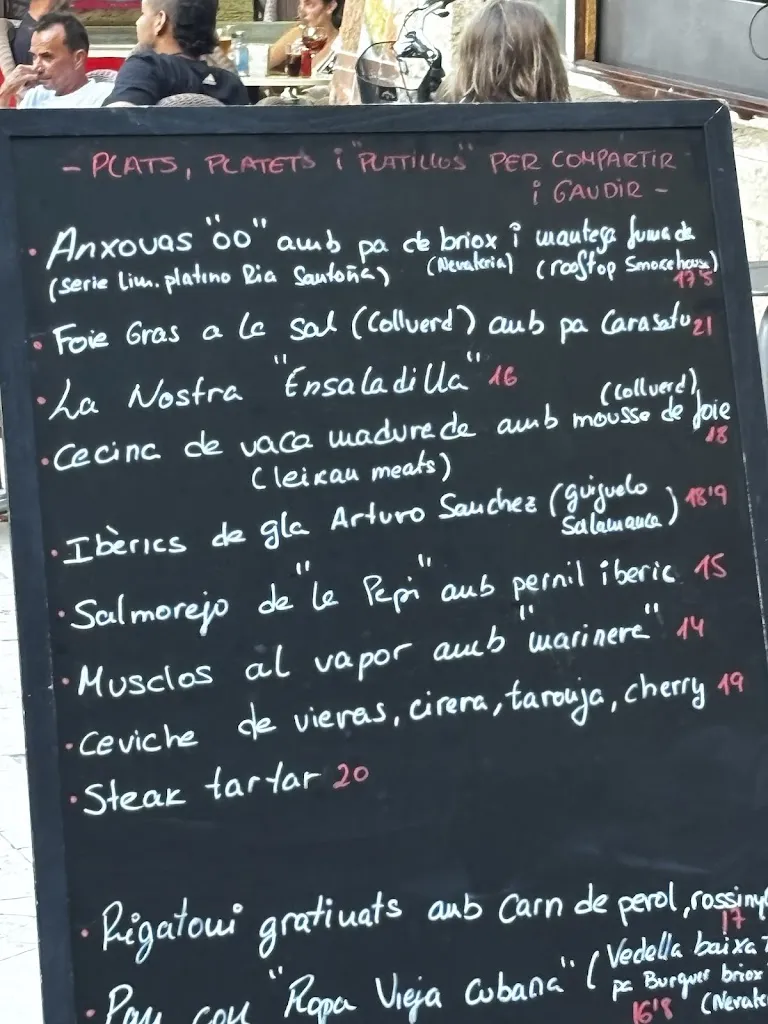 - PLATS, PLATETS i "PLATILLOS" PER COMPARTIR
i GAUDIR -
· Anxovas "00" amb pa de briox i mantega fumada
(serie Lim. platino Ria Santoña) (Nevateria) (rooftop Smokehouse)
17'5
· Foie Gras a la sal (Collverd) amb pa Carasatu 21
· La Nostra "Ensaladilla" 16
(Collverd)
· Cecina de vaca madurada amb mousse de foie
18
(Leixau meats)
· Ibèrics de gla Arturo Sanchez (guijuelo Salamanca) 18'9
· Salmorejo de "la Pepi" amb pernil iberic 15
· Musclos al vapor amb "marinera" 14
· Ceviche de vieras, cirera, taronja, cherry 19
· Steak tartar 20
· Rigatoni gratinats amb Carn de perol, rossiny
17
· Pan con "Ropa Vieja cubana" (Vedella baixa
pa Burguer briox
16'8 (Nevate